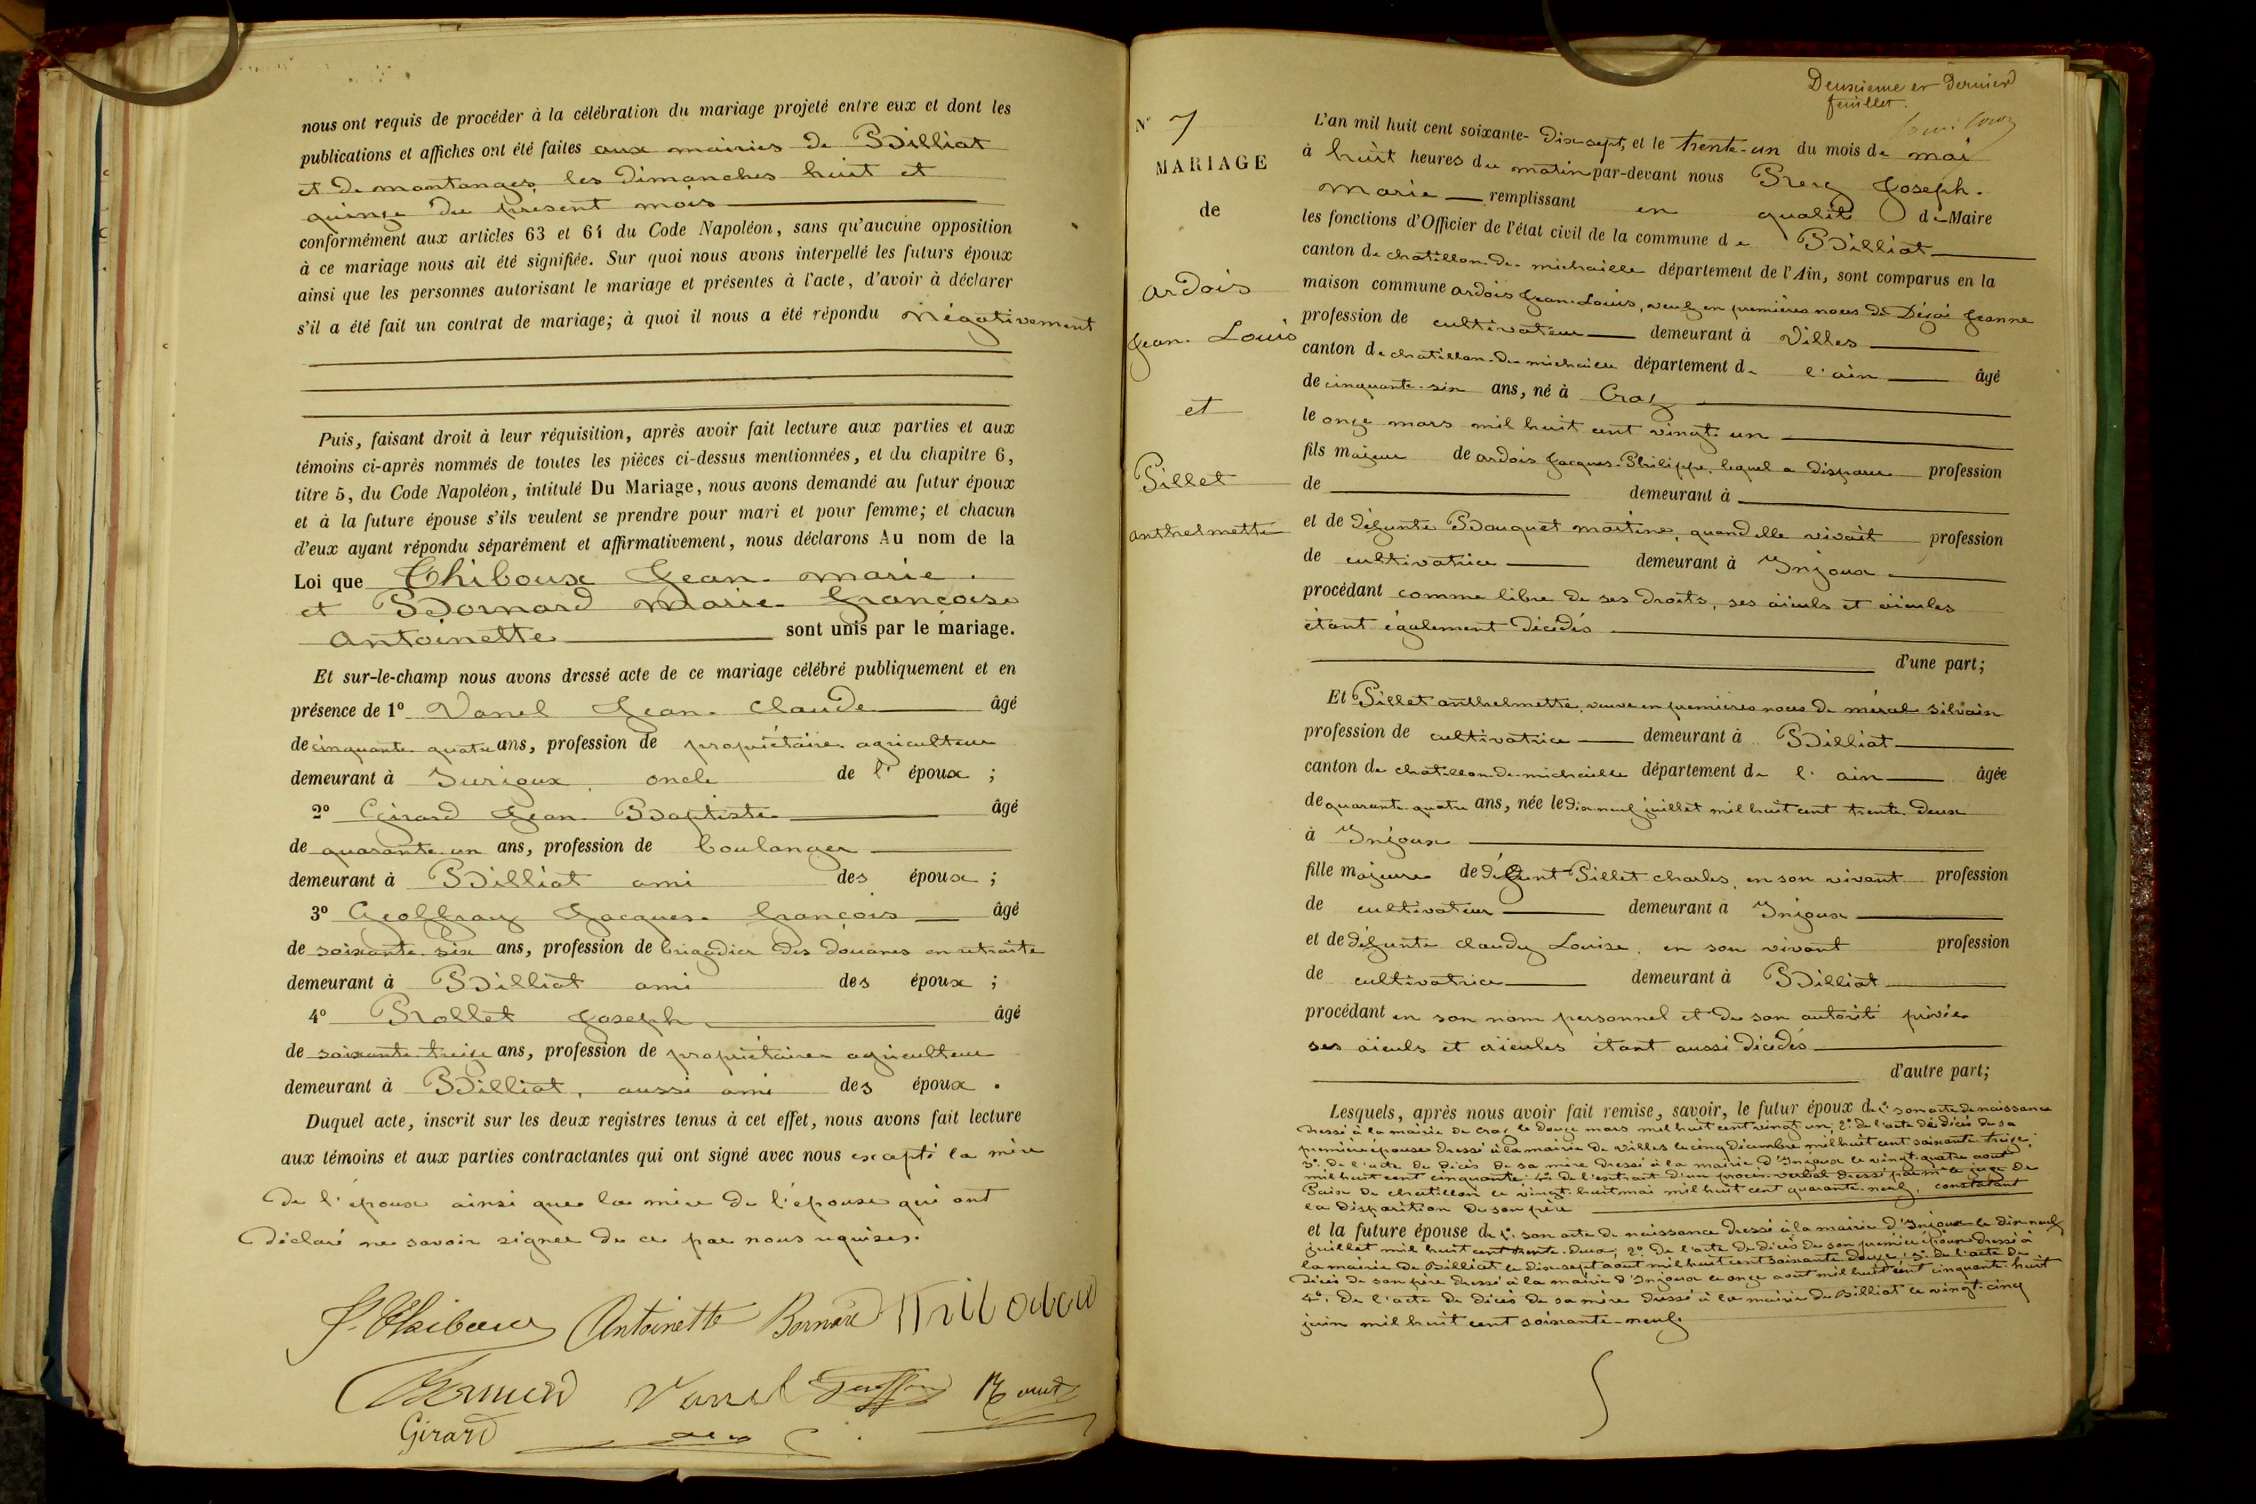 nous ont requis de procéder à la célébration du mariage projeté entre eux et dont les
publications et affiches ont été faites aux mairies de Billiat
et de montanges, les dimanches huit et
quinze du présent mois
conformément aux articles 63 et 64 du Code Napoléon, sans qu'aucune opposition
à ce mariage nous ait été signifiée. Sur quoi nous avons interpellé les futurs époux
ainsi que les personnes autorisant le mariage et présentes à l'acte, d'avoir à déclarer
s'il a été fait un contrat de mariage; à quoi il nous a été répondu négativement
Puis, faisant droit à leur réquisition, après avoir fait lecture aux parties et aux
témoins ci-après nommés de toutes les pièces ci-dessus mentionnées, et du chapitre 6,
titre 5, du Code Napoléon, intitulé Du Mariage, nous avons demandé au futur époux
et à la future épouse s'ils veulent se prendre pour mari et pour femme; et chacun
d'eux ayant répondu séparément et affirmativement, nous déclarons Au nom de la
Loi que Thiboux Jean-marie
et Bornard marie-françoise
antoinette sont unis par le mariage.
Et sur-le-champ nous avons dressé acte de ce mariage célébré publiquement et en
présence de 1° Vanel Jean-Claude âgé
de cinquante quatre ans, profession de propriétaire agriculteur
demeurant à Surjoux, oncle de l'époux;
2° Girard Jean-Baptiste âgé
de quarante-un ans, profession de boulanger
demeurant à Billiat ami des époux;
3° Geoffray Jacques-françois âgé
de soixante-six ans, profession de brigadier des douanes en retraite
demeurant à Billiat ami des époux;
4° Prollet Joseph âgé
de soixante-treize ans, profession de propriétaire agriculteur
demeurant à Billiat, aussi ami des époux.
Duquel acte, inscrit sur les deux registres tenus à cet effet, nous avons fait lecture
aux témoins et aux parties contractantes qui ont signé avec nous excepté la mère
de l'époux ainsi que la mère de l'épouse qui ont
déclaré ne savoir signer de ce par nous requises.
Antoinette Bornard
Vanel
Girard
Deuxième et dernier
feuillet.
N° 7
MARIAGE
de
ardois
Jean-Louis
et
Pillet
anthelmette
L'an mil huit cent soixante-dix-sept, et le trente-un du mois de mai
à huit heures du matin par-devant nous Joseph-
marie remplissant en qualité de Maire
les fonctions d'Officier de l'état civil de la commune de Billiat
canton de chatillon-de-michaille département de l'Ain, sont comparus en la
maison commune ardois Jean-Louis, veuf en premières noces de Déjoi Jeanne
profession de cultivateur demeurant à Villes
canton de chatillon-de-michaille département de l'ain âgé
de cinquante-six ans, né à Craz
le onze mars mil huit cent vingt-un
fils majeur de ardois Jacques-Philippe, lequel a disparu profession
de demeurant à
et de défunte Bouquet martine, quand elle vivait profession
de cultivatrice demeurant à Injoux
procédant comme libre de ses droits, ses aïeuls et aïeules
étant également décédés
d'une part;
Et Pillet anthelmette, veuve en premières noces de méral silvain
profession de cultivatrice demeurant à Billiat
canton de chatillon-de-michaille département de l'ain âgée
de quarante-quatre ans, née le dix neuf juillet mil huit cent trente-deux
à Injoux
fille majeure de défunt Pillet charles, en son vivant profession
de cultivateur demeurant à Injoux
et de défunte claudy Louise, en son vivant profession
de cultivatrice demeurant à Billiat
procédant en son nom personnel et de son autorité privée
ses aïeuls et aïeules étant aussi décédés
d'autre part;
Lesquels, après nous avoir fait remise, savoir, le futur époux de 1° son acte de naissance
dressé à la mairie de craz le douze mars mil huit cent vingt un, 2° de l'acte de décès de sa
première épouse dressé à la mairie de villes le cinq décembre mil huit cent soixante-treize,
3° de l'acte de décès de sa mère dressé à la mairie d'Injoux le vingt-quatre aout
mil huit cent cinquante, 4° de l'extrait d'un procès-verbal dressé par mr le juge de
Paix de chatillon le vingt-huit mai mil huit cent quarante-neuf, constatant
la disparition de son père
et la future épouse de 1° son acte de naissance dressé à la mairie d'Injoux le dix-neuf
juillet mil huit cent trente-deux; 2° de l'acte de décès de son premier époux dressé à
la mairie de Billiat le dix-sept aout mil huit cent soixante-douze; 3° de l'acte de
décès de son père dressé à la mairie d'Injoux le onze aout mil huit cent cinquante-huit
4° de l'acte de décès de sa mère dressé à la mairie de Billiat le vingt-cinq
juin mil huit cent soixante-neuf.